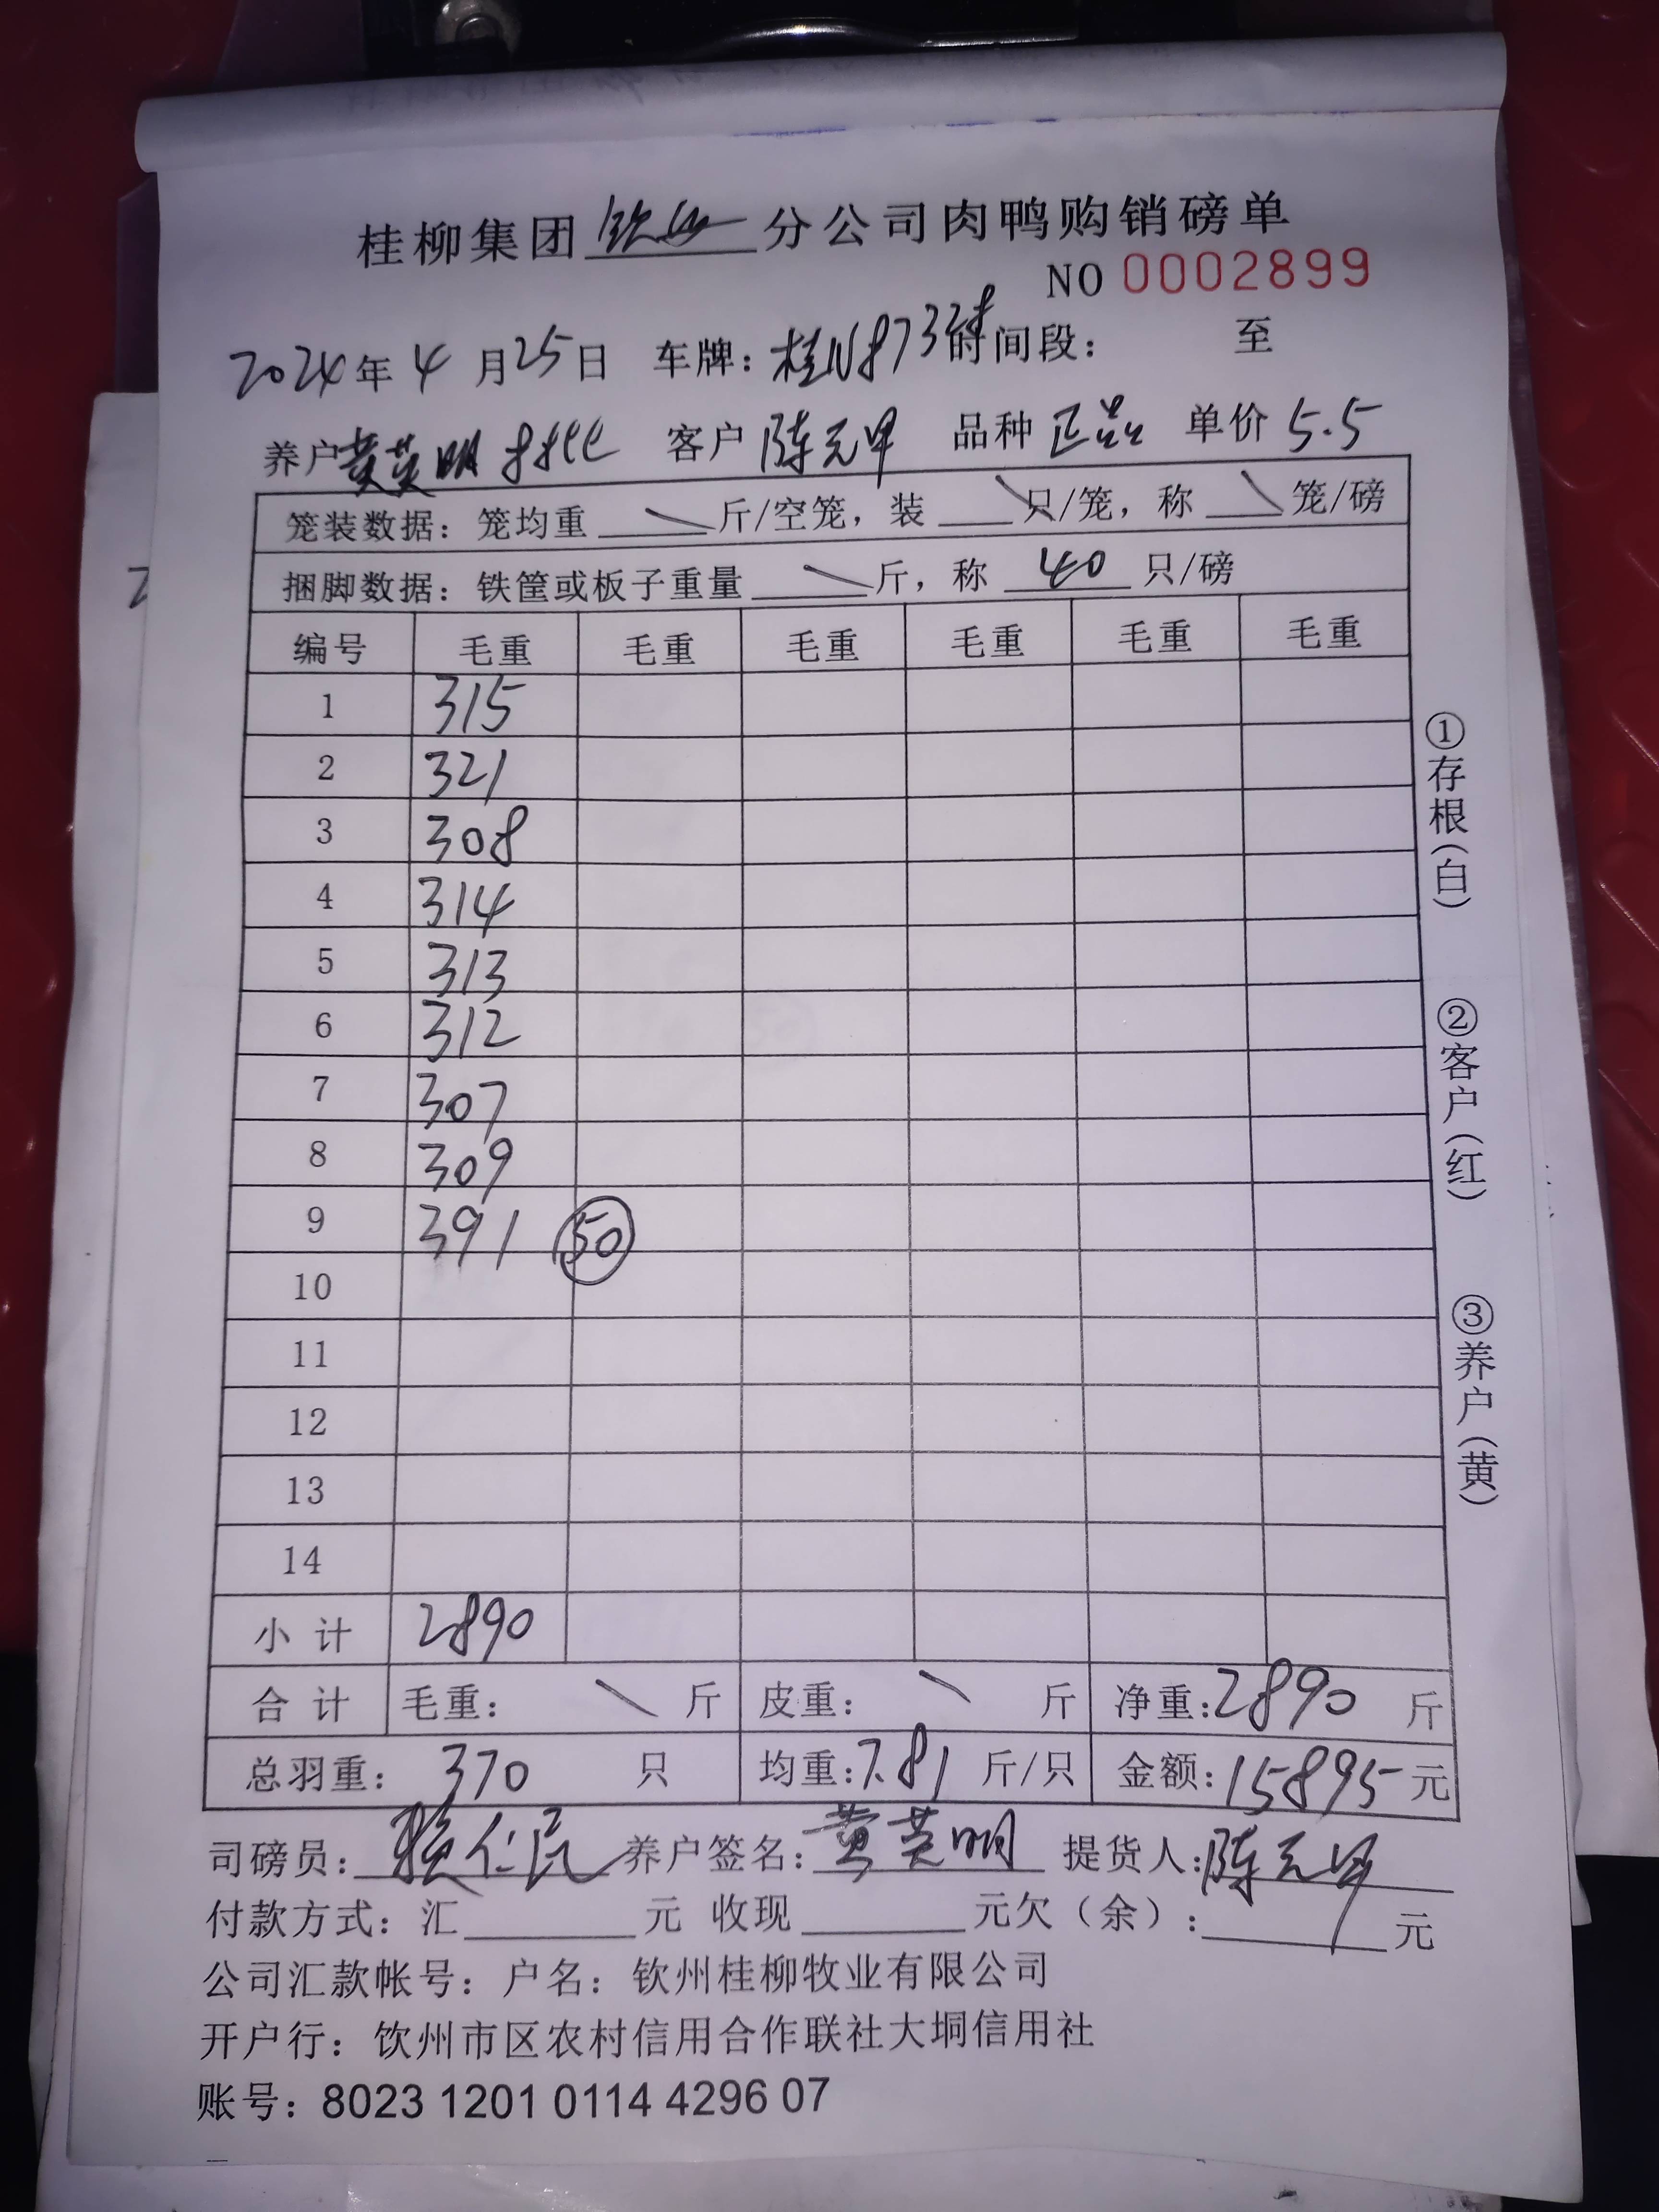 桂柳集团钦州分公司肉鸭购销磅单
NO 0002899
2024年4月25日 车牌：桂N873 时间段： 至
养户黄英明 客户陈元甲 品种正品 单价5.5
笼装数据：笼均重 \ 斤/空笼，装 \ 只/笼，称 \ 笼/磅
捆脚数据：铁筐或板子重量 \ 斤，称 40 只/磅
编号 毛重 毛重 毛重 毛重 毛重 毛重
1 315
2 321
3 308
4 314
5 313
6 312
7 307
8 309
9 391 50
10
11
12
13
14
小计 2890
合计 毛重： \ 斤 皮重： \ 斤 净重：2890 斤
总羽重： 370 只 均重：7.81 斤/只 金额：15895元
司磅员： 仁民 养户签名：黄英明 提货人：陈元甲
付款方式：汇 元 收现 元欠（余）： 元
公司汇款帐号：户名：钦州桂柳牧业有限公司
开户行：钦州市区农村信用合作联社大垌信用社
账号：8023 1201 0114 4296 07
①存根（白）
②客户（红）
③养户（黄）